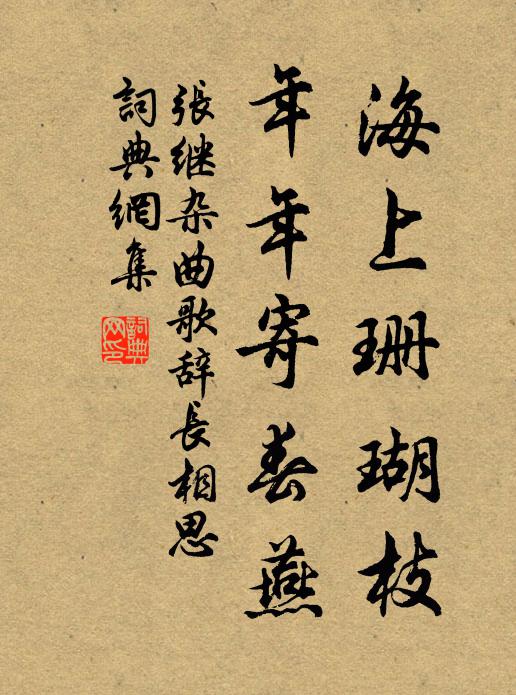 海上珊瑚枝
年年寄春燕
張继杂曲歌辞長相思
詞典網集
詞典网印